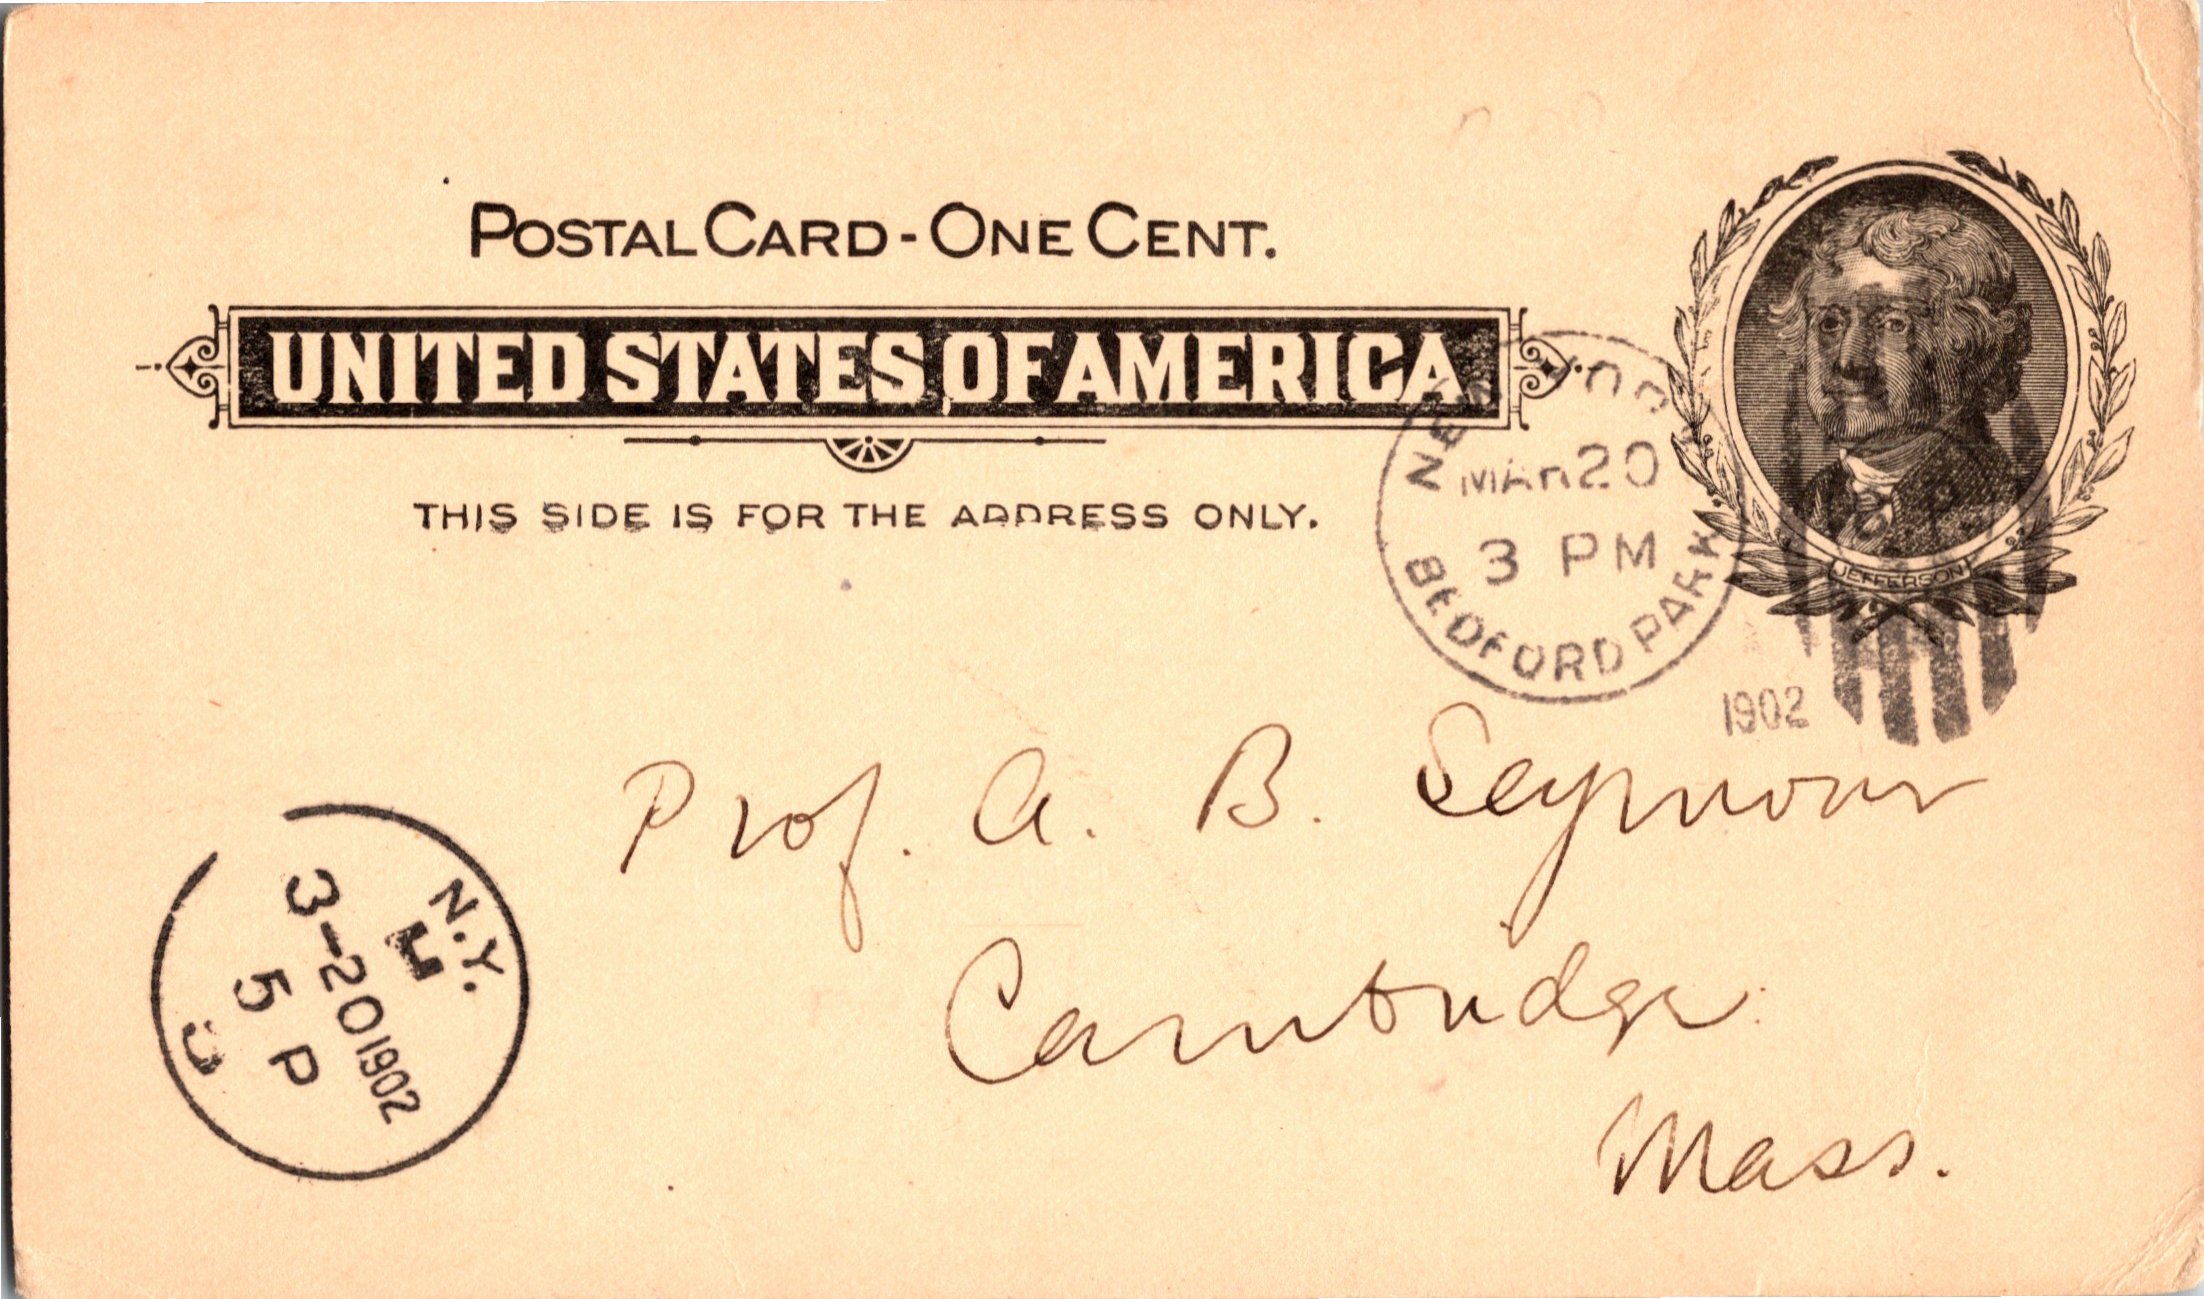 POSTAL CARD - ONE CENT.
UNITED STATES OF AMERICA
THIS SIDE IS FOR THE ADDRESS ONLY.
JEFFERSON
NEW YORK
MAR 20
3 PM
BEDFORD PARK
1902
Prof. A. B. Seymour
Cambridge
Mass.
N.Y.
H
3-20 1902
5 P